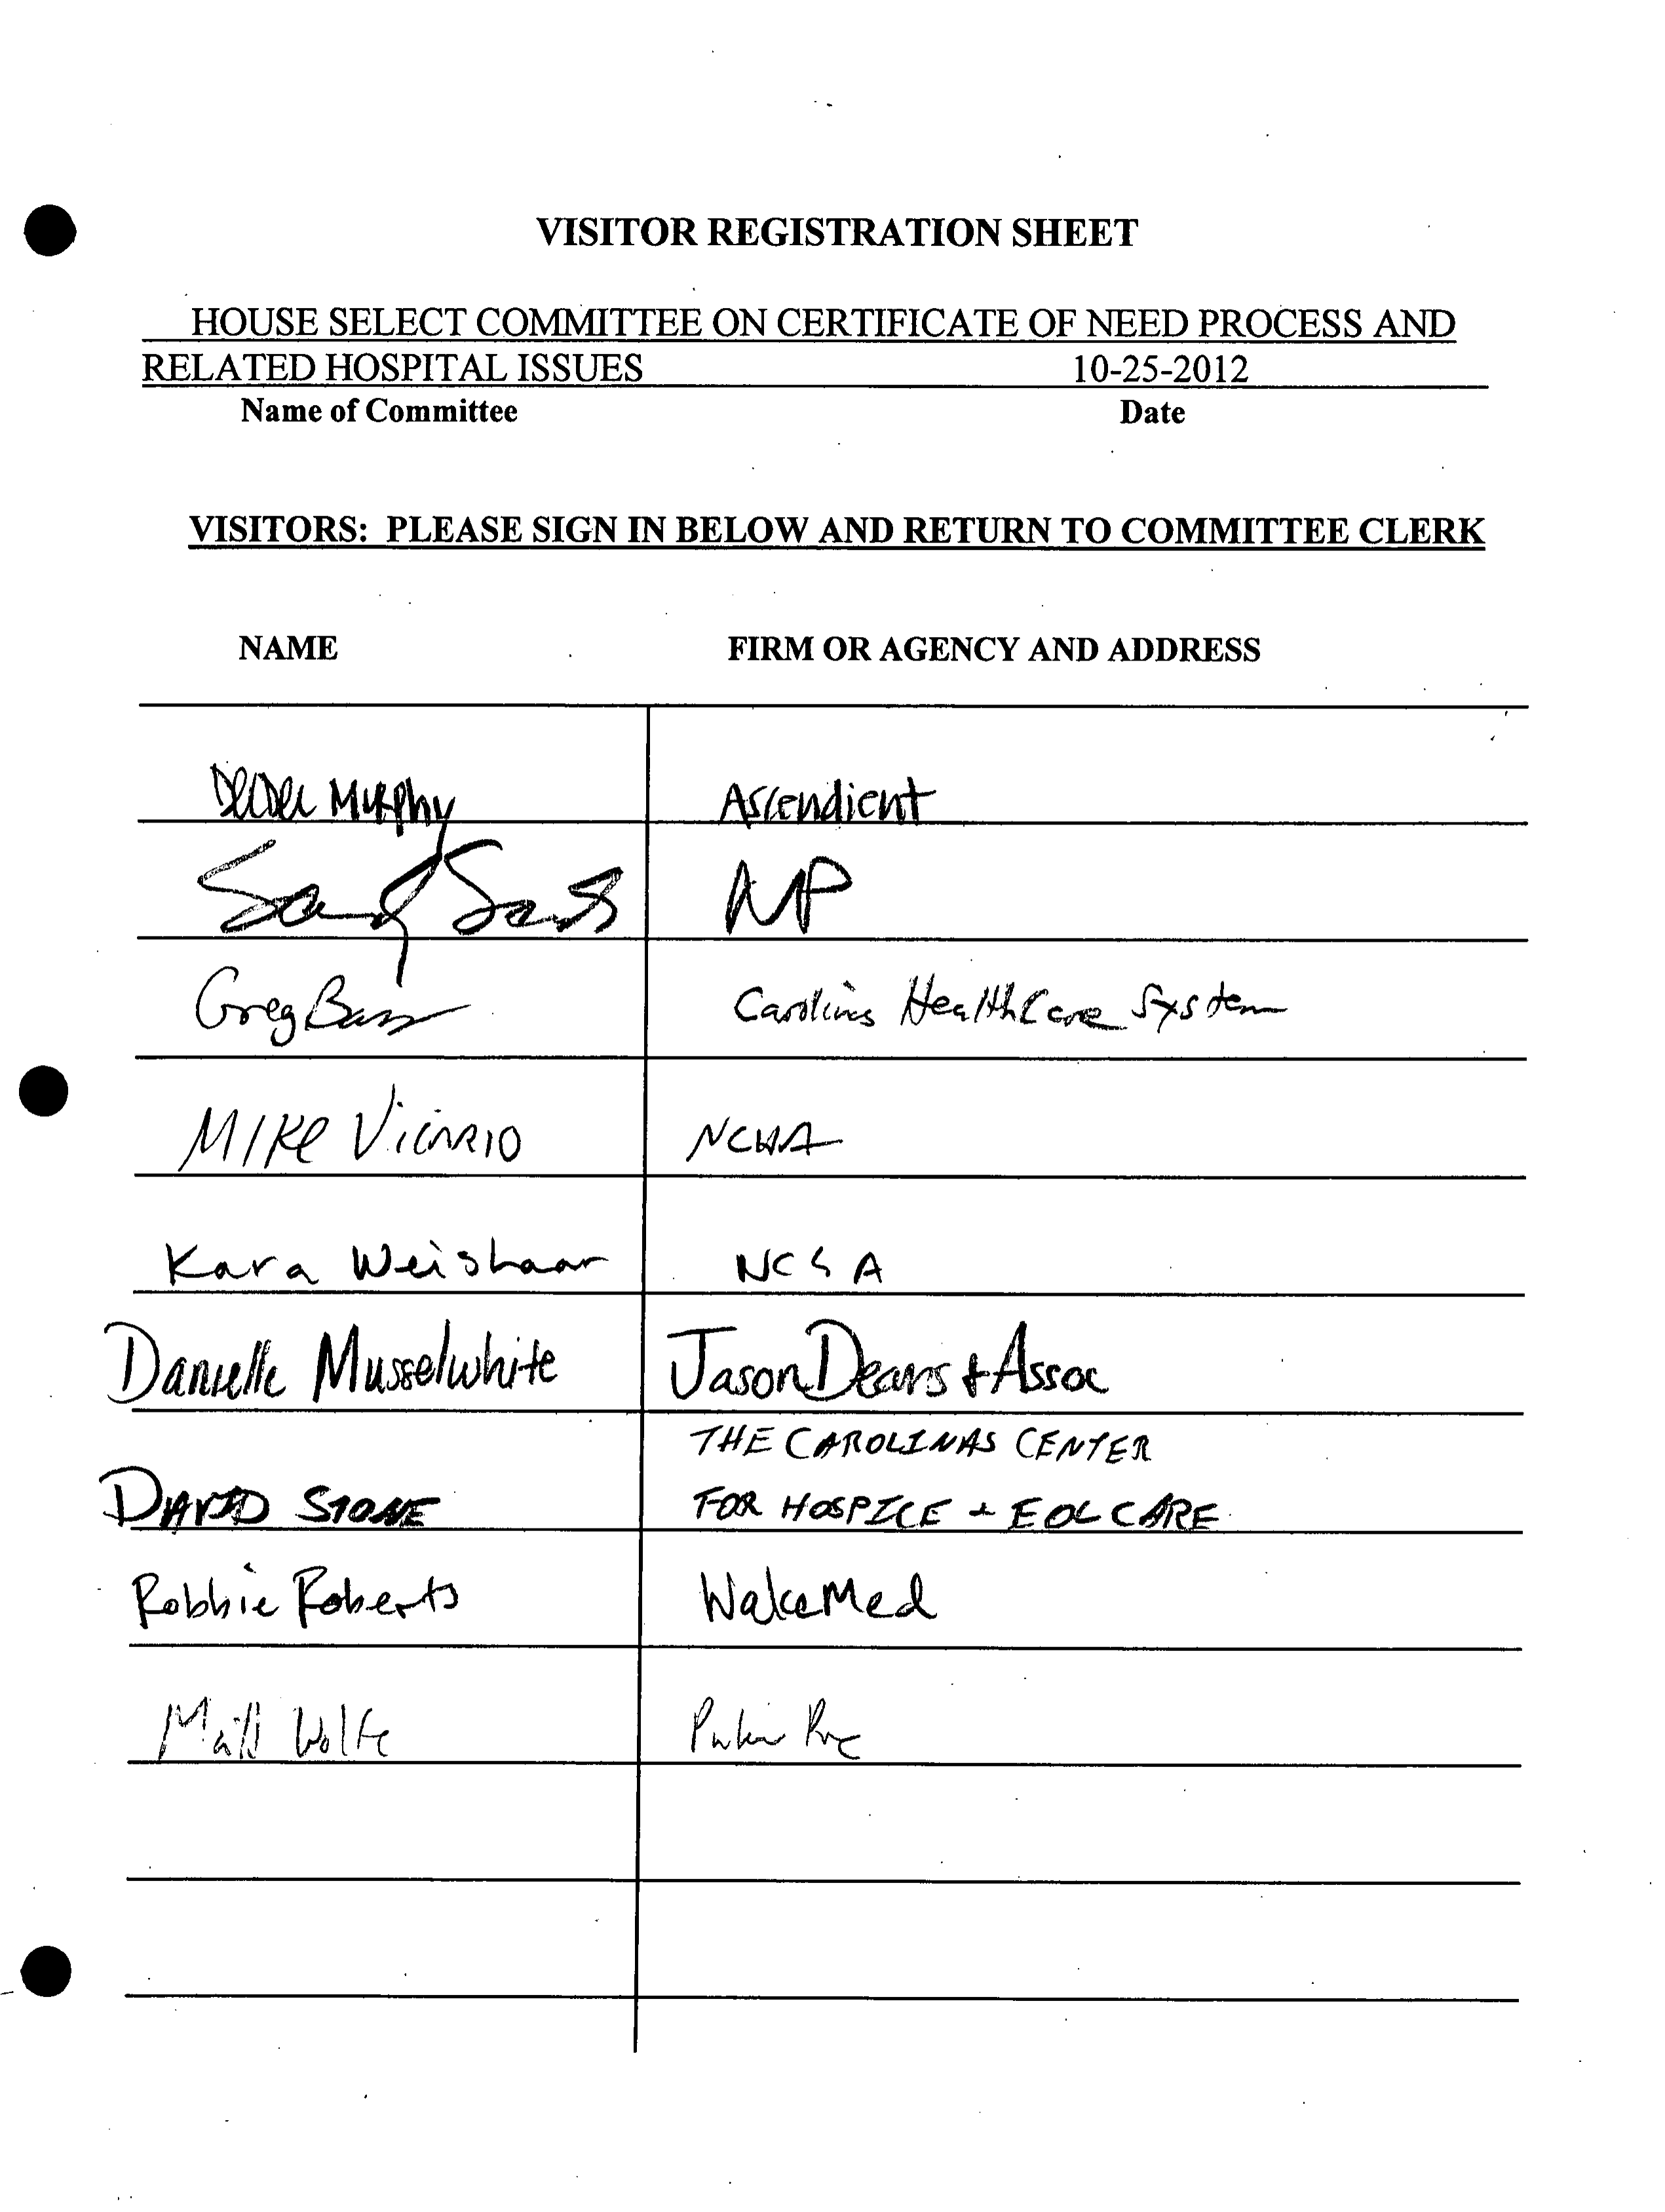 VISITOR REGISTRATION SHEET
HOUSE SELECT COMMITTEE ON CERTIFICATE OF NEED PROCESS AND
RELATED HOSPITAL ISSUES 10-25-2012
Name of Committee Date
VISITORS: PLEASE SIGN IN BELOW AND RETURN TO COMMITTEE CLERK
NAME FIRM OR AGENCY AND ADDRESS
Murphy Ascendient
Sandy Sands NP
Greg Bass Carolinas HealthCare System
MIKE VICARIO NCHA
Kara Weishaar NCSA
Danielle Musselwhite Jason Deans + Assoc
THE CAROLINAS CENTER
DAVID STONE FOR HOSPICE + EOL CARE
Robbie Roberts WakeMed
Matt Wolfe